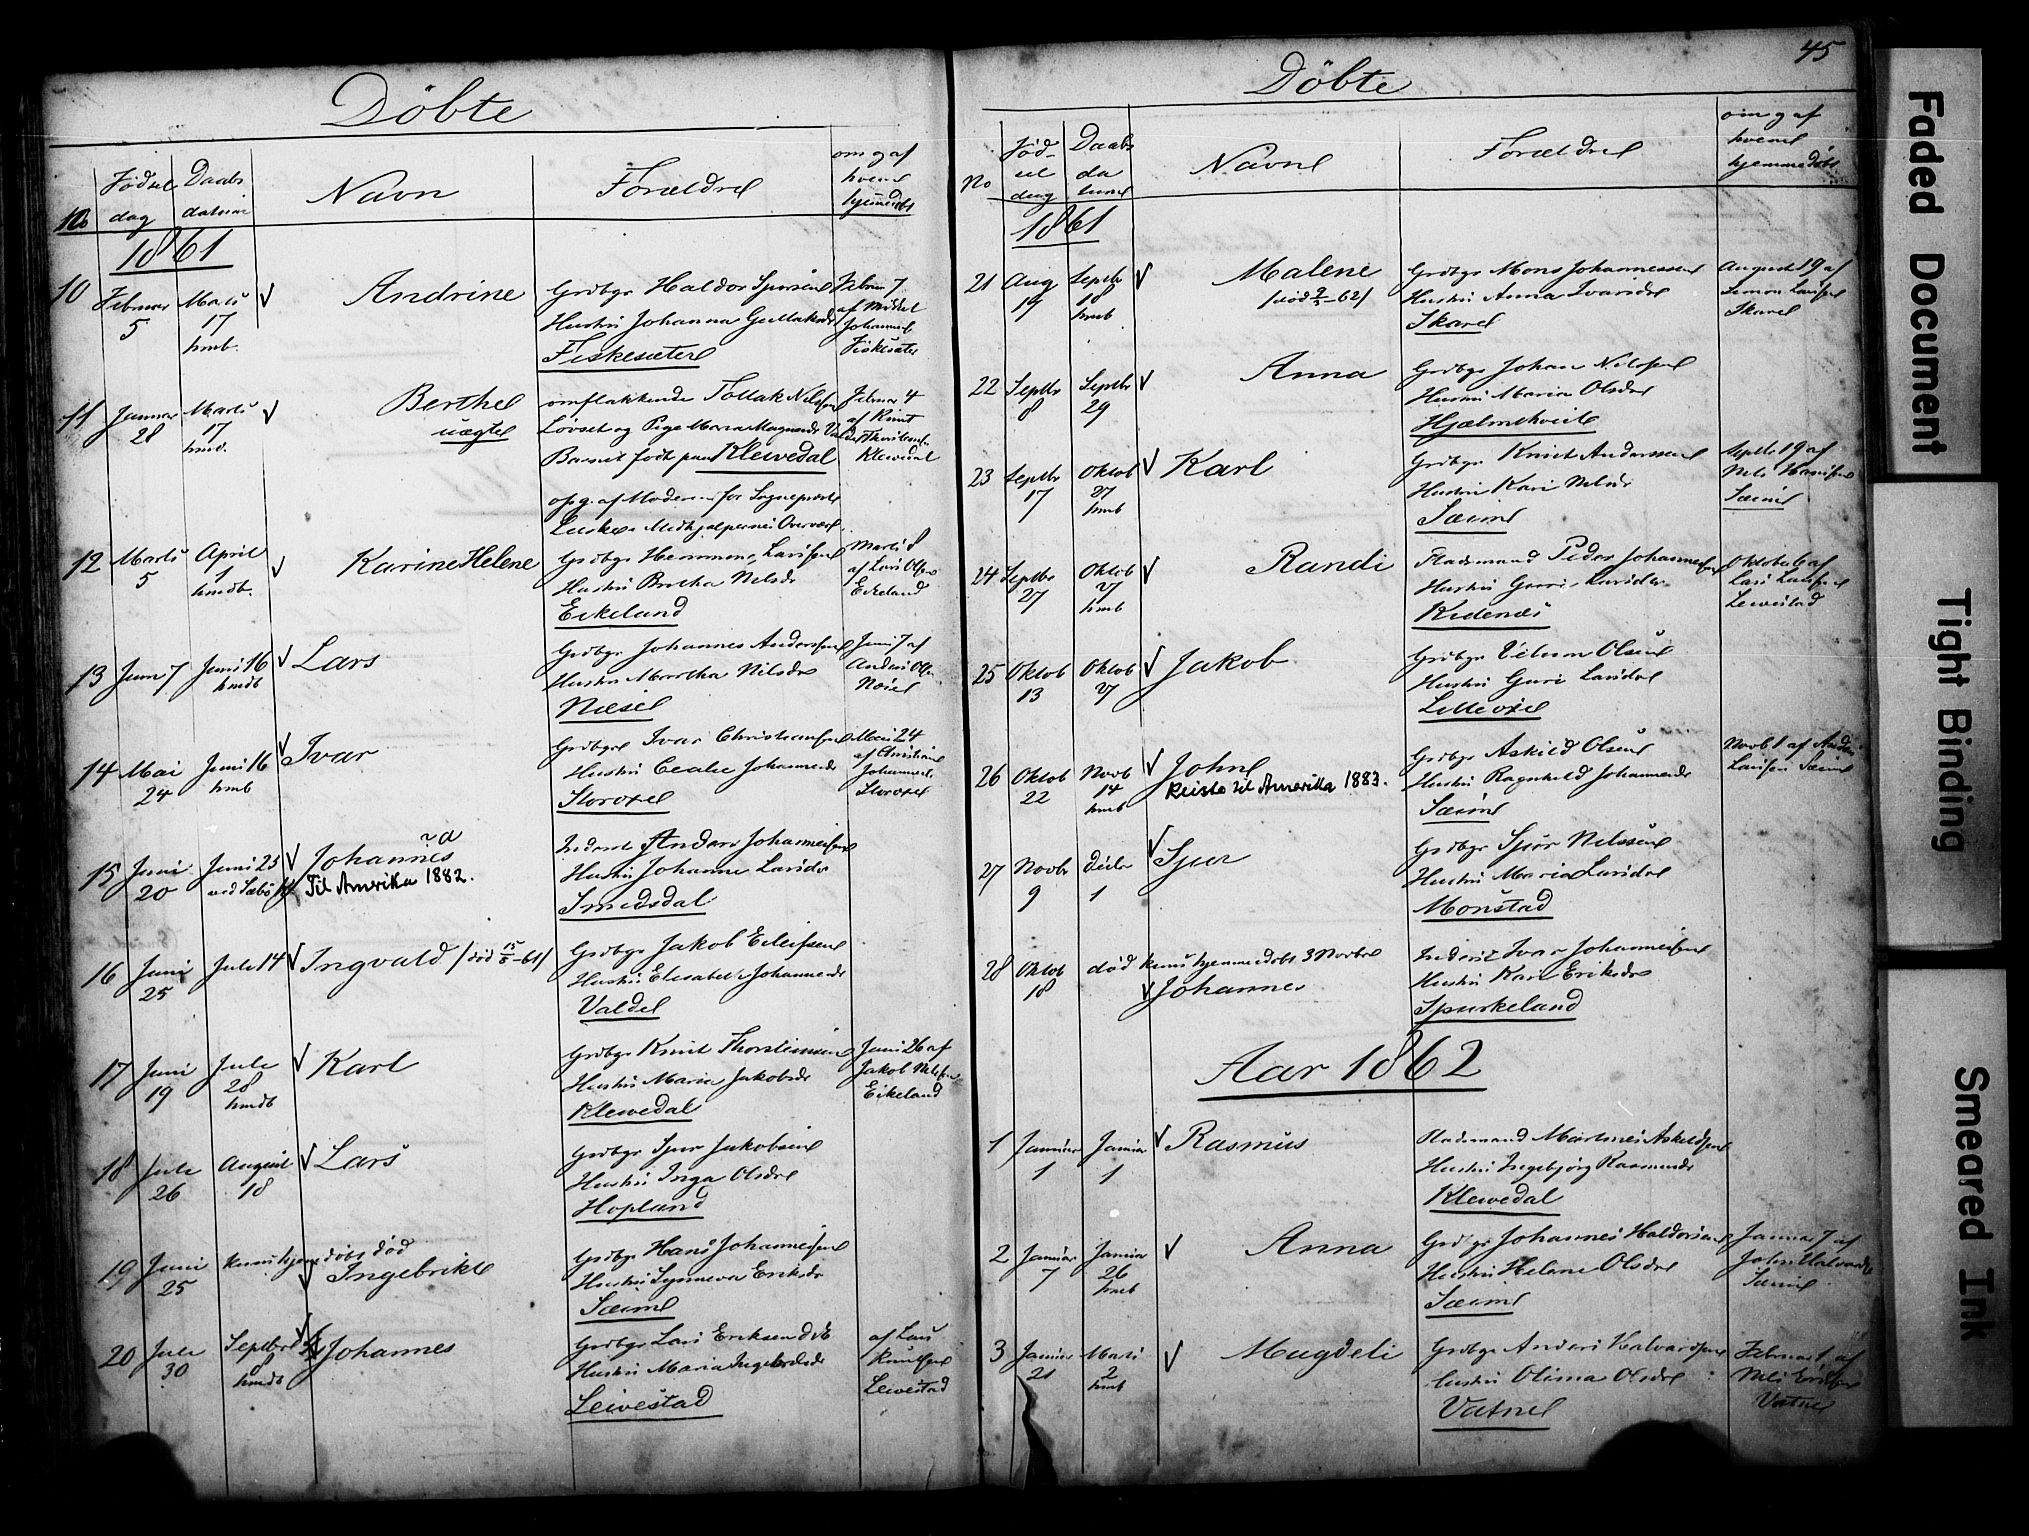 Döbte
No
Födsel dag
Daabs datum
Navn
Forældre
om og af hvem hjemmedøbt
1861
10 Februar 5 Marts 17 hmb. Andrine
Grdbgr Haldor
Hustru Johanna
Fiskesæter
Februar 7
af Mikkel
Johannes
Fiskesæter
11 Januar 28 Marts 17 hmd. Berthe
uægte
omflakkende Tollak Nilsen
Løvset og Pige Maria Magnusdr
Barnet født paa Klewedal
Februar 4
af Knut
Klewedal
opg. af Moderen for Sognepræst
Medhjælpernes Overvær
12 Marts 5 April 1 hmdb. Karine Helene
Grdbgr Hemming Larssen
Hustru Brotha Nilsdr
Eikeland
Marts 8
af Lars Olsen
Eikeland
13 Juni 7 Juni 16 hmdb Lars
Grdbgr Johannes Andersen
Hustru Martha Nilsdr
Næse
Juni 7 af
Anders Olsen
Næse
14 Mai 24 Juni 16 hmb Ivar
Grdbgr Ivar Christiansen
Hustru Johannesdr
Storoxe
Mai 24
af Christian
Johannes
Storoxe
15 Juni 20 Juni 23 Johannes
Til Amerika 1882.
Inderst Anders Johannessen
Hustru Johanne Larsdr
Smedsdal
16 Juni 25 Juli 14 Ingvald /død 15/8-61/
Grdbgr Jakob Eilefsen
Hustru Elisabet Johannesdr
Valde
17 Juni 19 Juli 28 hmdb Karl
Grdbgr Knut Thorsteinsen
Hustru Maria Jakobsdr
Klewedal
Juni 26 af
Jakob Nilsen
Eikeland
18 Juli 26 August 18 Lars
Grdbgr Sjur Jakobsen
Hustru Inga Olsdr
Hopland
19 Juni 25 kuns hjemmedøbt død
Ingebrikt
Grdbgr Hans Johannessen
Hustru Synneva Eriksdr
Sæim
20 Juli 30 Septbr 8 hmdb Johannes
Grdbgr Lars Eriksen
Hustru Maria Ingebretsdr
Leivestad
af Lars
Knutsen
Leivestad
45
Döbte
No
Födsel dag
Daabs datum
Navne
Forældre
om og af hvem hjemmedøbt
1861
21 Aug 19 Septbr 18 hmb Malene
/død 9/2-62/
Grdbgr Mons Johannessen
Hustru Anna Ivarsdr
Skare
August 19 af
Simon Larsen
Skare
22 Septbr 8 Septbr 29 Anna
Grdbgr Johan Nilsen
Hustru Maria Olsdr
Hjælmtveit
23 Septbr 17 Oktob 27 hmb Karl
Grdbgr Knut Anderssen
Hustru Kari Nilsdr
Sæim
Septbr 19 af
Nils Hansen
Sæim
24 Septbr 27 Oktob 27 hmb Randi
Pladsmand Peder Johannessen
Hustru Guri Larsdr
Kidenæs
Oktober 6 af
Lars Larsen
Leivestad
25 Oktob 13 Oktob 27 Jakob
Grdbgr Vilum Olsen
Hustru Guri Larsdr
Litleoxe
26 Oktob 22 Novb 14 hmb Johne
Reiste til Amerika 1883.
Grdbgr Askild Olsen
Hustru Ragnhild Johannesdr
Sæim
Novb 1 af Anders
Larsen Sæim
27 Novbr 9 Decbr 1 Sjur
Grdbgr Sjur Nilssen
Hustru Maria Larsdr
Monstad
28 Oktob 18 død kuns hjemmedøbt 3 Novbr
Johannes
Inderst Ivar Johannessen
Hustru Kari Eriksdr
Spurkeland
Aar 1862
1 Januar 1 Januar 1 Rasmus
Pladsmand Martines Askildsen
Hustru Ingebjørg Rasmusdr
Klewedal
2 Januar 7 Januar 26 hmb Anna
Grdbgr Johannes Haldorsen
Hustru Helene Olsdr
Sæim
Januar 7 af
Sæim
3 Januar 21 Marts 2 hmb Magdeli
Grdbgr Anders Halvardsen
Hustru Olina Olsdr
Vatne
Februar 1 af
Nils
Vatne
Faded Document
Tight Binding
Smeared Ink